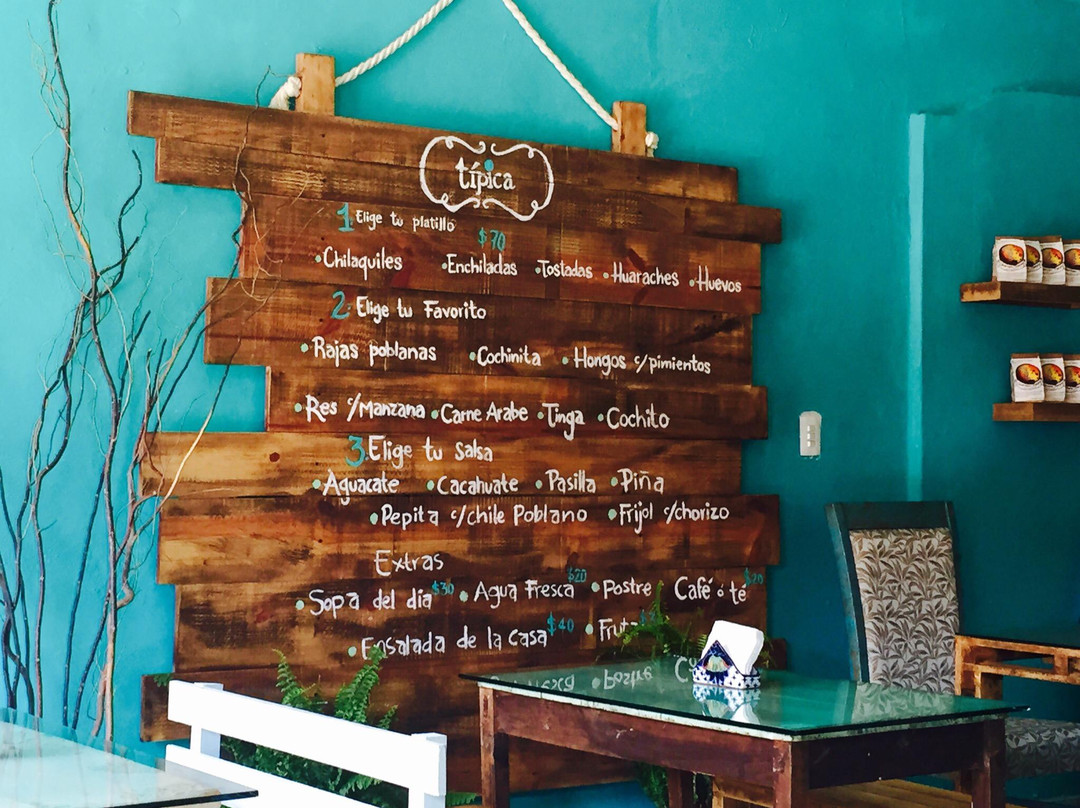 típica
1 Elige tu platillo
$70
•Chilaquiles •Enchiladas •Tostadas •Huaraches •Huevos
2. Elige tu Favorito
•Rajas poblanas •Cochinita •Hongos c/pimientos
•Res c/Manzana •Carne Arabe •Tinga •Cochito
3. Elige tu Salsa
•Aguacate •Cacahuate •Pasilla •Piña
•Pepita c/chile Poblano •Frijol c/chorizo
Extras
•Sopa del día $30 •Agua Fresca $20 •Postre Café ó té $20
•Ensalada de la Casa $40 •Fruta